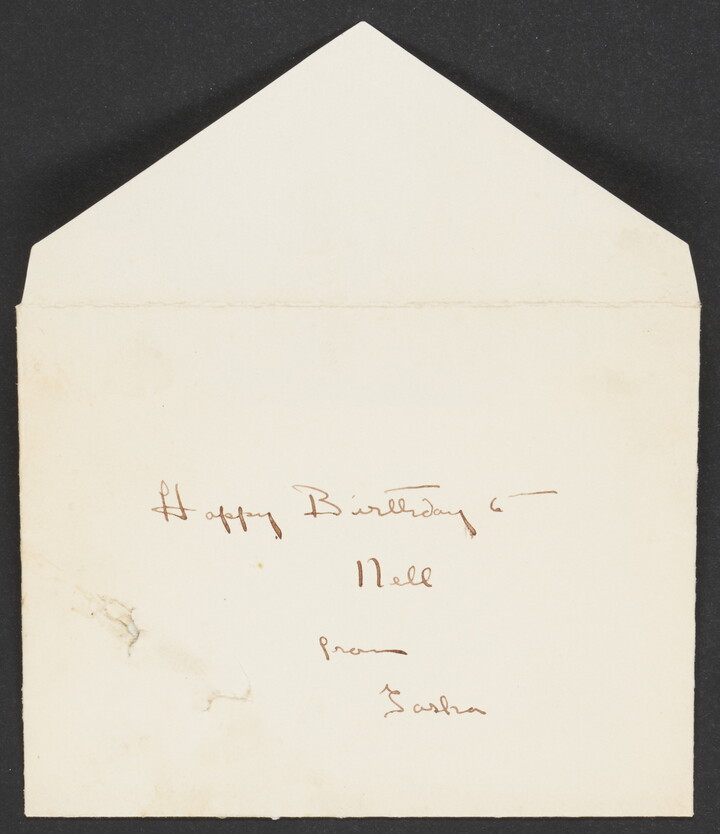 Happy Birthday to
Nell
from
Tasha